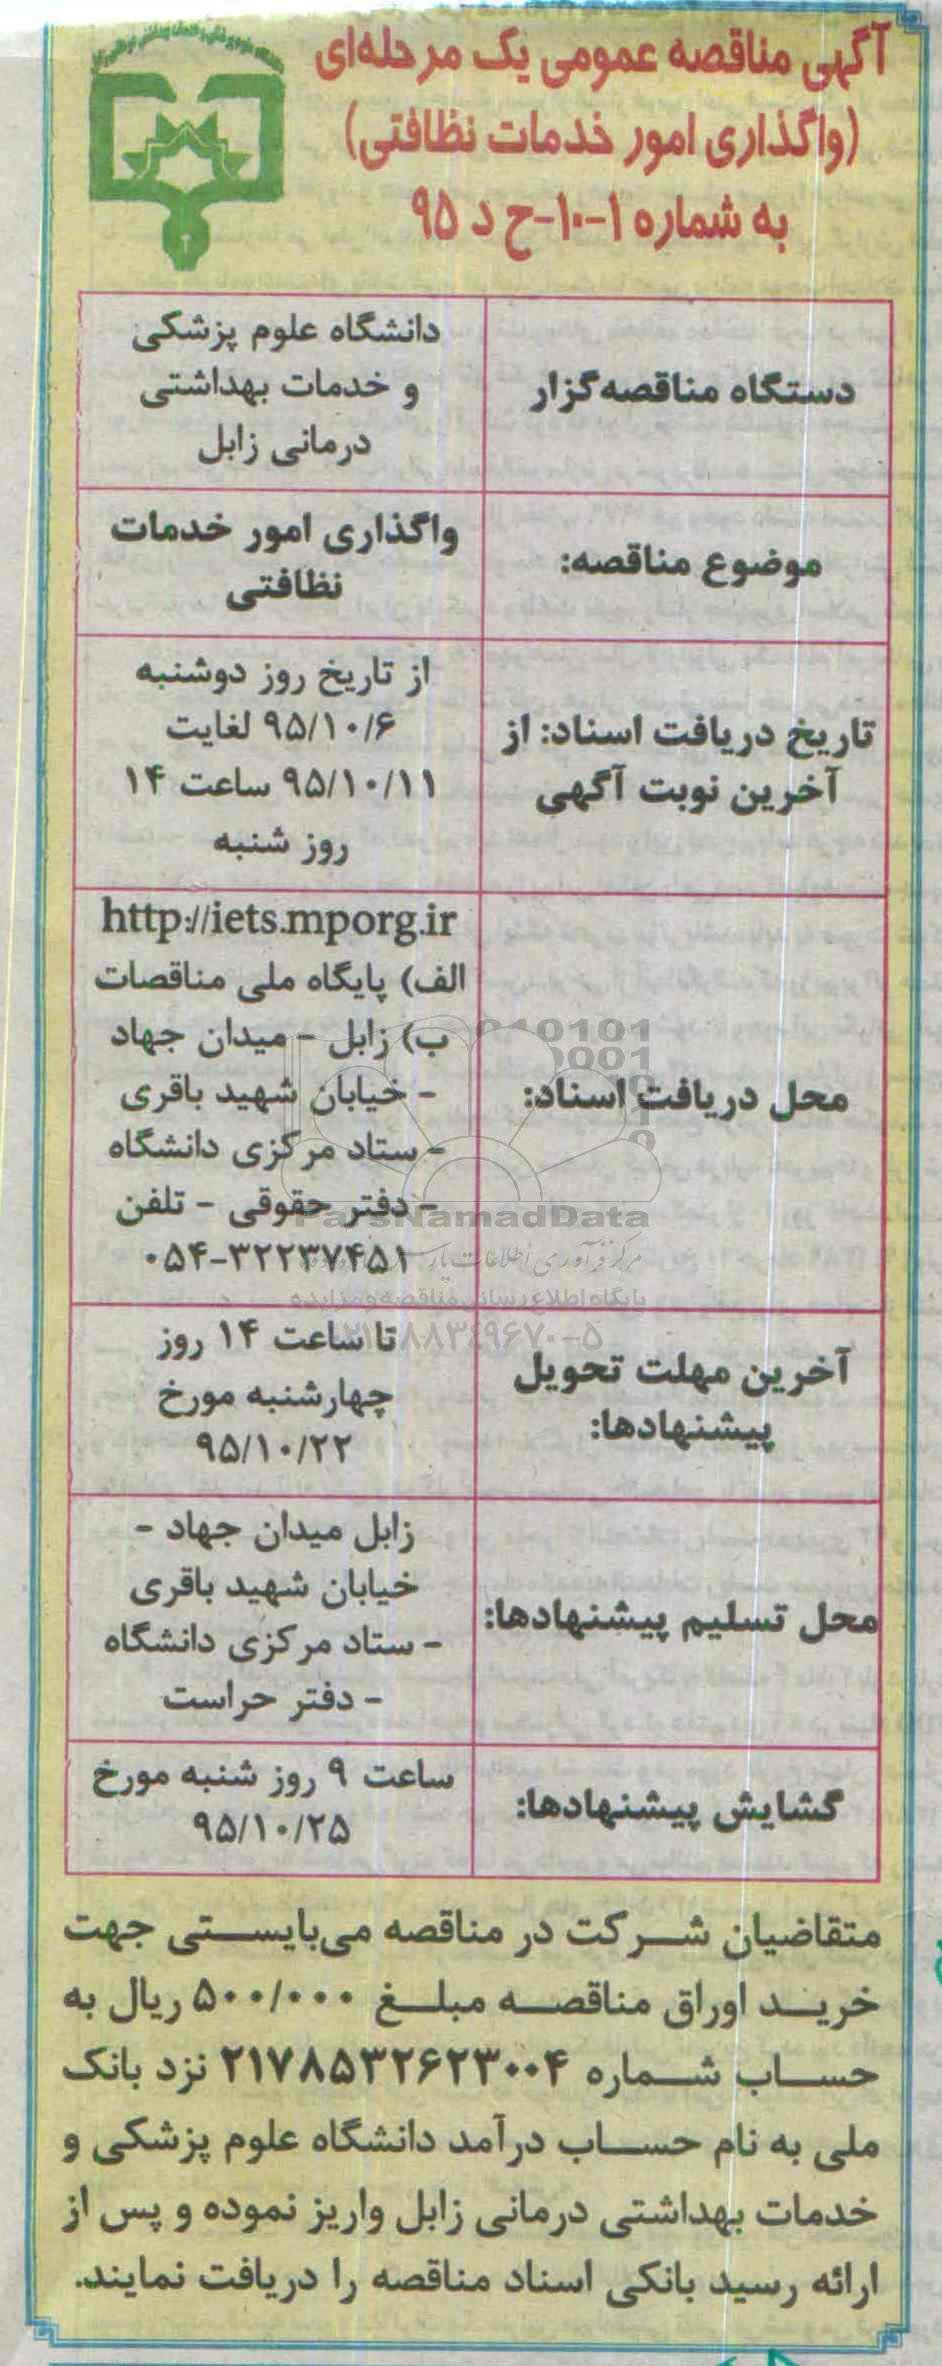 آگهی مناقصه عمومی یک مرحله‌ای
(واگذاری امور خدمات نظافتی)
به شماره ۱-۱۰-ح د ۹۵
دستگاه مناقصه‌گزار
دانشگاه علوم پزشکی
و خدمات بهداشتی
درمانی زابل
موضوع مناقصه:
واگذاری امور خدمات
نظافتی
تاریخ دریافت اسناد: از
آخرین نوبت آگهی
از تاریخ روز دوشنبه
۹۵/۱۰/۶ لغایت
۹۵/۱۰/۱۱ ساعت ۱۴
روز شنبه
محل دریافت اسناد:
http://iets.mporg.ir
الف) پایگاه ملی مناقصات
ب) زابل - میدان جهاد
- خیابان شهید باقری
- ستاد مرکزی دانشگاه
- دفتر حقوقی - تلفن
۰۵۴-۳۲۲۳۷۴۵۱
ParsNamadData
پایگاه اطلاع رسانی مناقصه و مزایده
آخرین مهلت تحویل
پیشنهادها:
تا ساعت ۱۴ روز
چهارشنبه مورخ
۹۵/۱۰/۲۲
محل تسلیم پیشنهادها:
زابل میدان جهاد -
خیابان شهید باقری
- ستاد مرکزی دانشگاه
- دفتر حراست
گشایش پیشنهادها:
ساعت ۹ روز شنبه مورخ
۹۵/۱۰/۲۵
متقاضیان شرکت در مناقصه می‌بایستی جهت
خرید اوراق مناقصه مبلغ ۵۰۰/۰۰۰ ریال به
حساب شماره ۲۱۷۸۵۳۲۶۲۳۰۰۴ نزد بانک
ملی به نام حساب درآمد دانشگاه علوم پزشکی و
خدمات بهداشتی درمانی زابل واریز نموده و پس از
ارائه رسید بانکی اسناد مناقصه را دریافت نمایند.